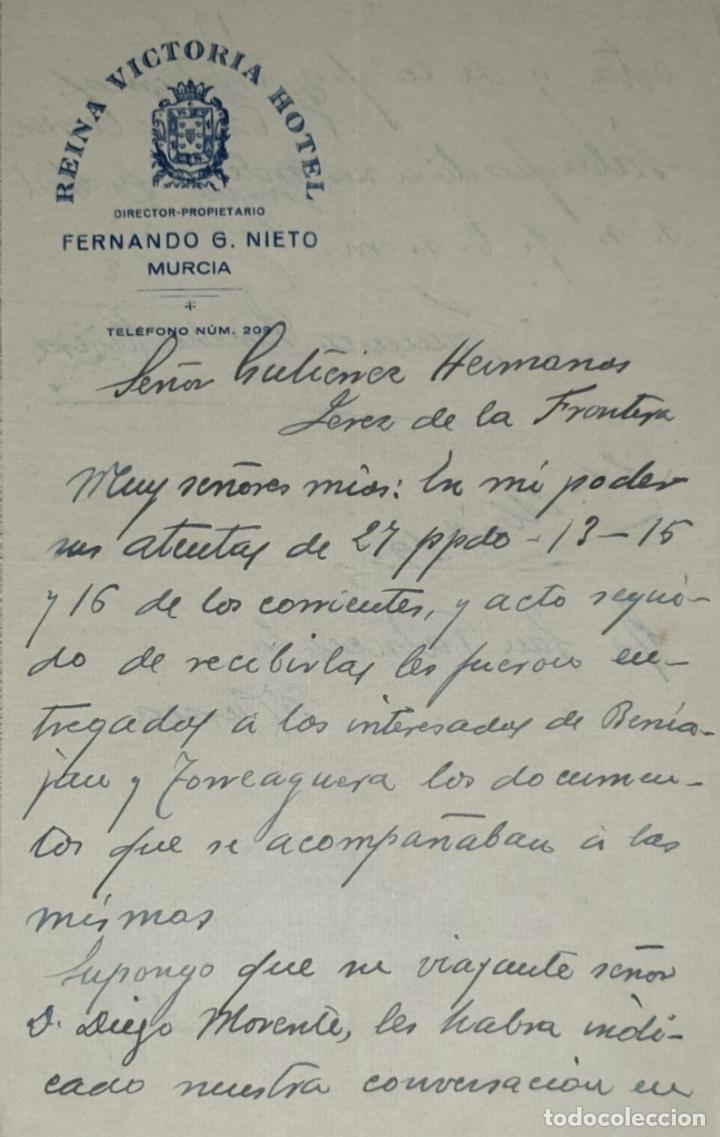 REINA VICTORIA HOTEL
DIRECTOR-PROPIETARIO
FERNANDO G. NIETO
MURCIA
TELÉFONO NÚM. 209
Señor Gutiérrez Hermanos
Jerez de la Frontera
Muy señores mios: En mi poder
sus atentas de 27 ppdo - 13 - 15
y 16 de los corrientes, y acto segui-
do de recibirlas les fueron en-
tregados á los interesados de Benia-
jan y Torreaguera los documen-
tos que se acompañaban á las
mismas
Supongo que su viajante señor
D. Diego Morente, les habra indi-
cado nuestra conversación en
todocoleccion